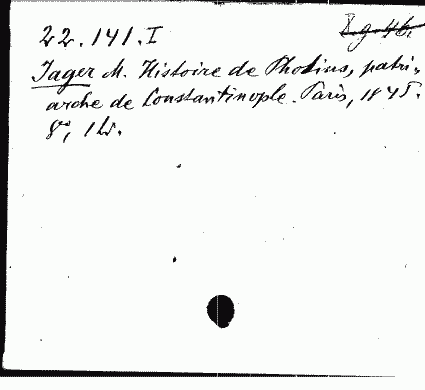 22.141.I
Jager M. Histoire de Photius, patri-
arche de Constantinople. Paris, 1845.
8°,